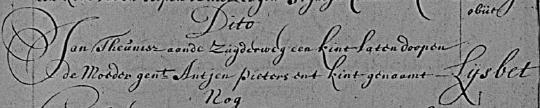 obiit
Dito
Jan Theunisz aande Zuyderweg een kint laten doopen
de Moeder gent. Antjen pieters ent kint genaamt Lijsbet
Nog